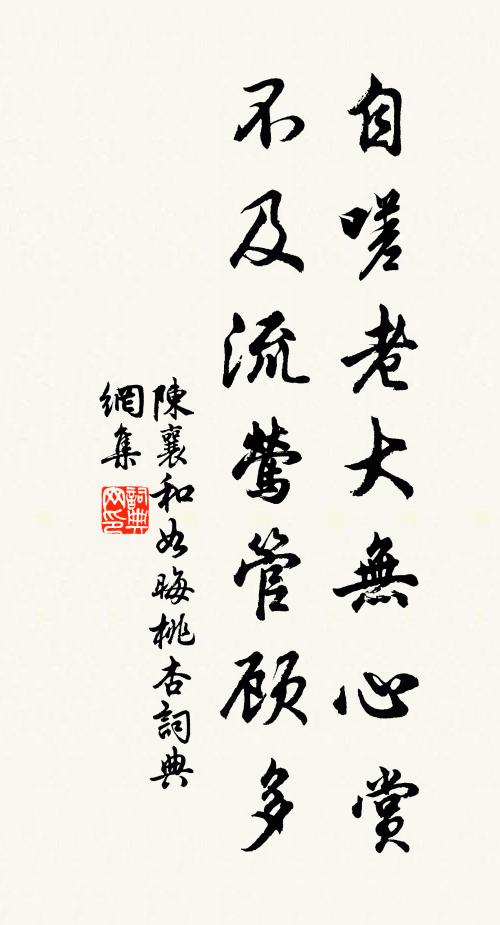 自嗟老大無心賞
不及流鶯管顾多
陳襄和如晦桃杏詞典
網集
詞典网印